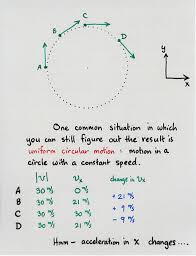 C
B
D
A
y
x
One common situation in which
you can still figure out the result is
uniform circular motion = motion in a
circle with a constant speed.
|v| vx change in vx
A 30 m/s 0 m/s
+ 21 m/s
B 30 m/s 21 m/s
+ 9 m/s
C 30 m/s 30 m/s
- 9 m/s
D 30 m/s 21 m/s
Hmm - acceleration in X changes....